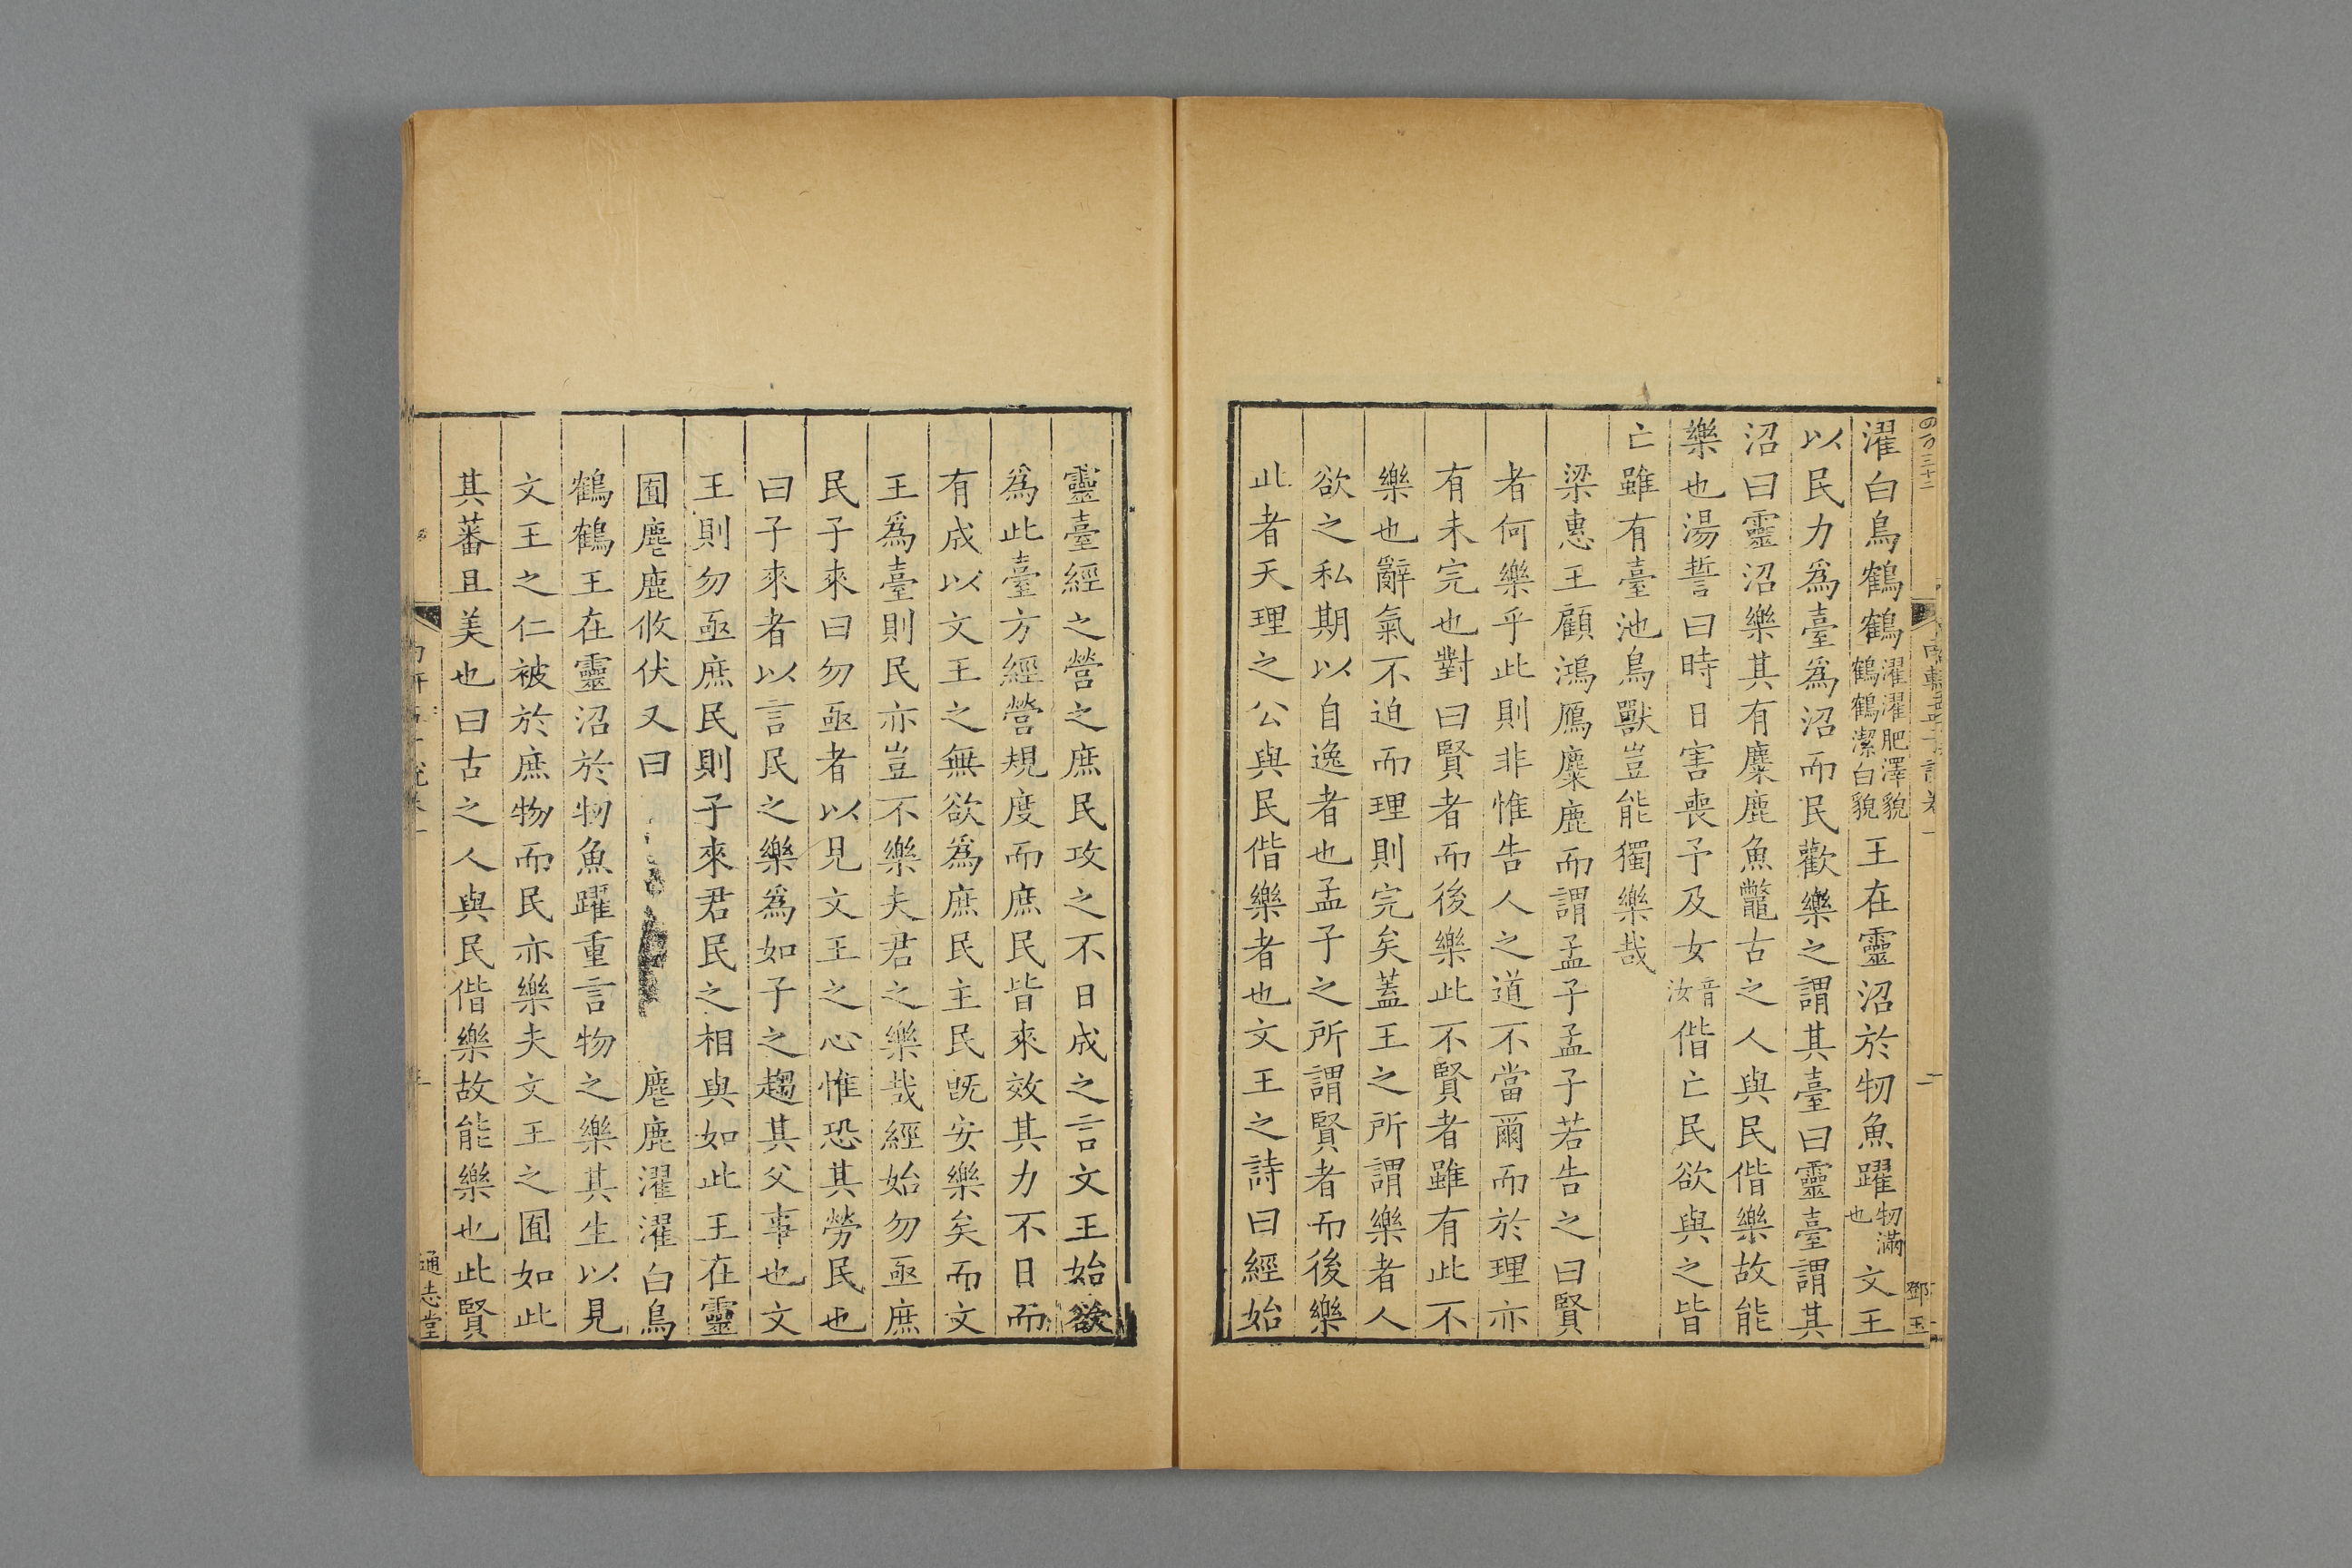 濯白鳥鶴鶴濯濯肥澤貌鶴鶴潔白貌王在靈沼於牣魚躍牣滿也文王
以民力爲臺爲沼而民歡樂之謂其臺曰靈臺謂其
沼曰靈沼樂其有麋鹿魚鼈古之人與民偕樂故能
樂也湯誓曰時日害喪予及女音汝偕亡民欲與之皆
亡雖有臺池鳥獸豈能獨樂哉
梁惠王顧鴻鴈麋鹿而謂孟子孟子若告之曰賢
者何樂乎此則非惟告人之道不當爾而於理亦
有未完也對曰賢者而後樂此不賢者雖有此不
樂也辭氣不迫而理則完矣蓋王之所謂樂者人
欲之私期以自逸者也孟子之所謂賢者而後樂
此者天理之公與民偕樂者也文王之詩曰經始
靈臺經之營之庶民攻之不日成之言文王始欲
爲此臺方經營規度而庶民皆來效其力不日而
有成以文王之無欲爲庶民主民旣安樂矣而文
王爲臺則民亦豈不樂夫君之樂哉經始勿亟庶
民子來曰勿亟者以見文王之心惟恐其勞民也
曰子來者以言民之樂爲如子之趨其父事也文
王則勿亟庶民則子來君民之相與如此王在靈
囿麀鹿攸伏又曰麀鹿濯濯白鳥
鶴鶴王在靈沼於牣魚躍重言物之樂其生以見
文王之仁被於庶物而民亦樂夫文王之囿如此
其蕃且美也曰古之人與民偕樂故能樂也此賢
通志堂